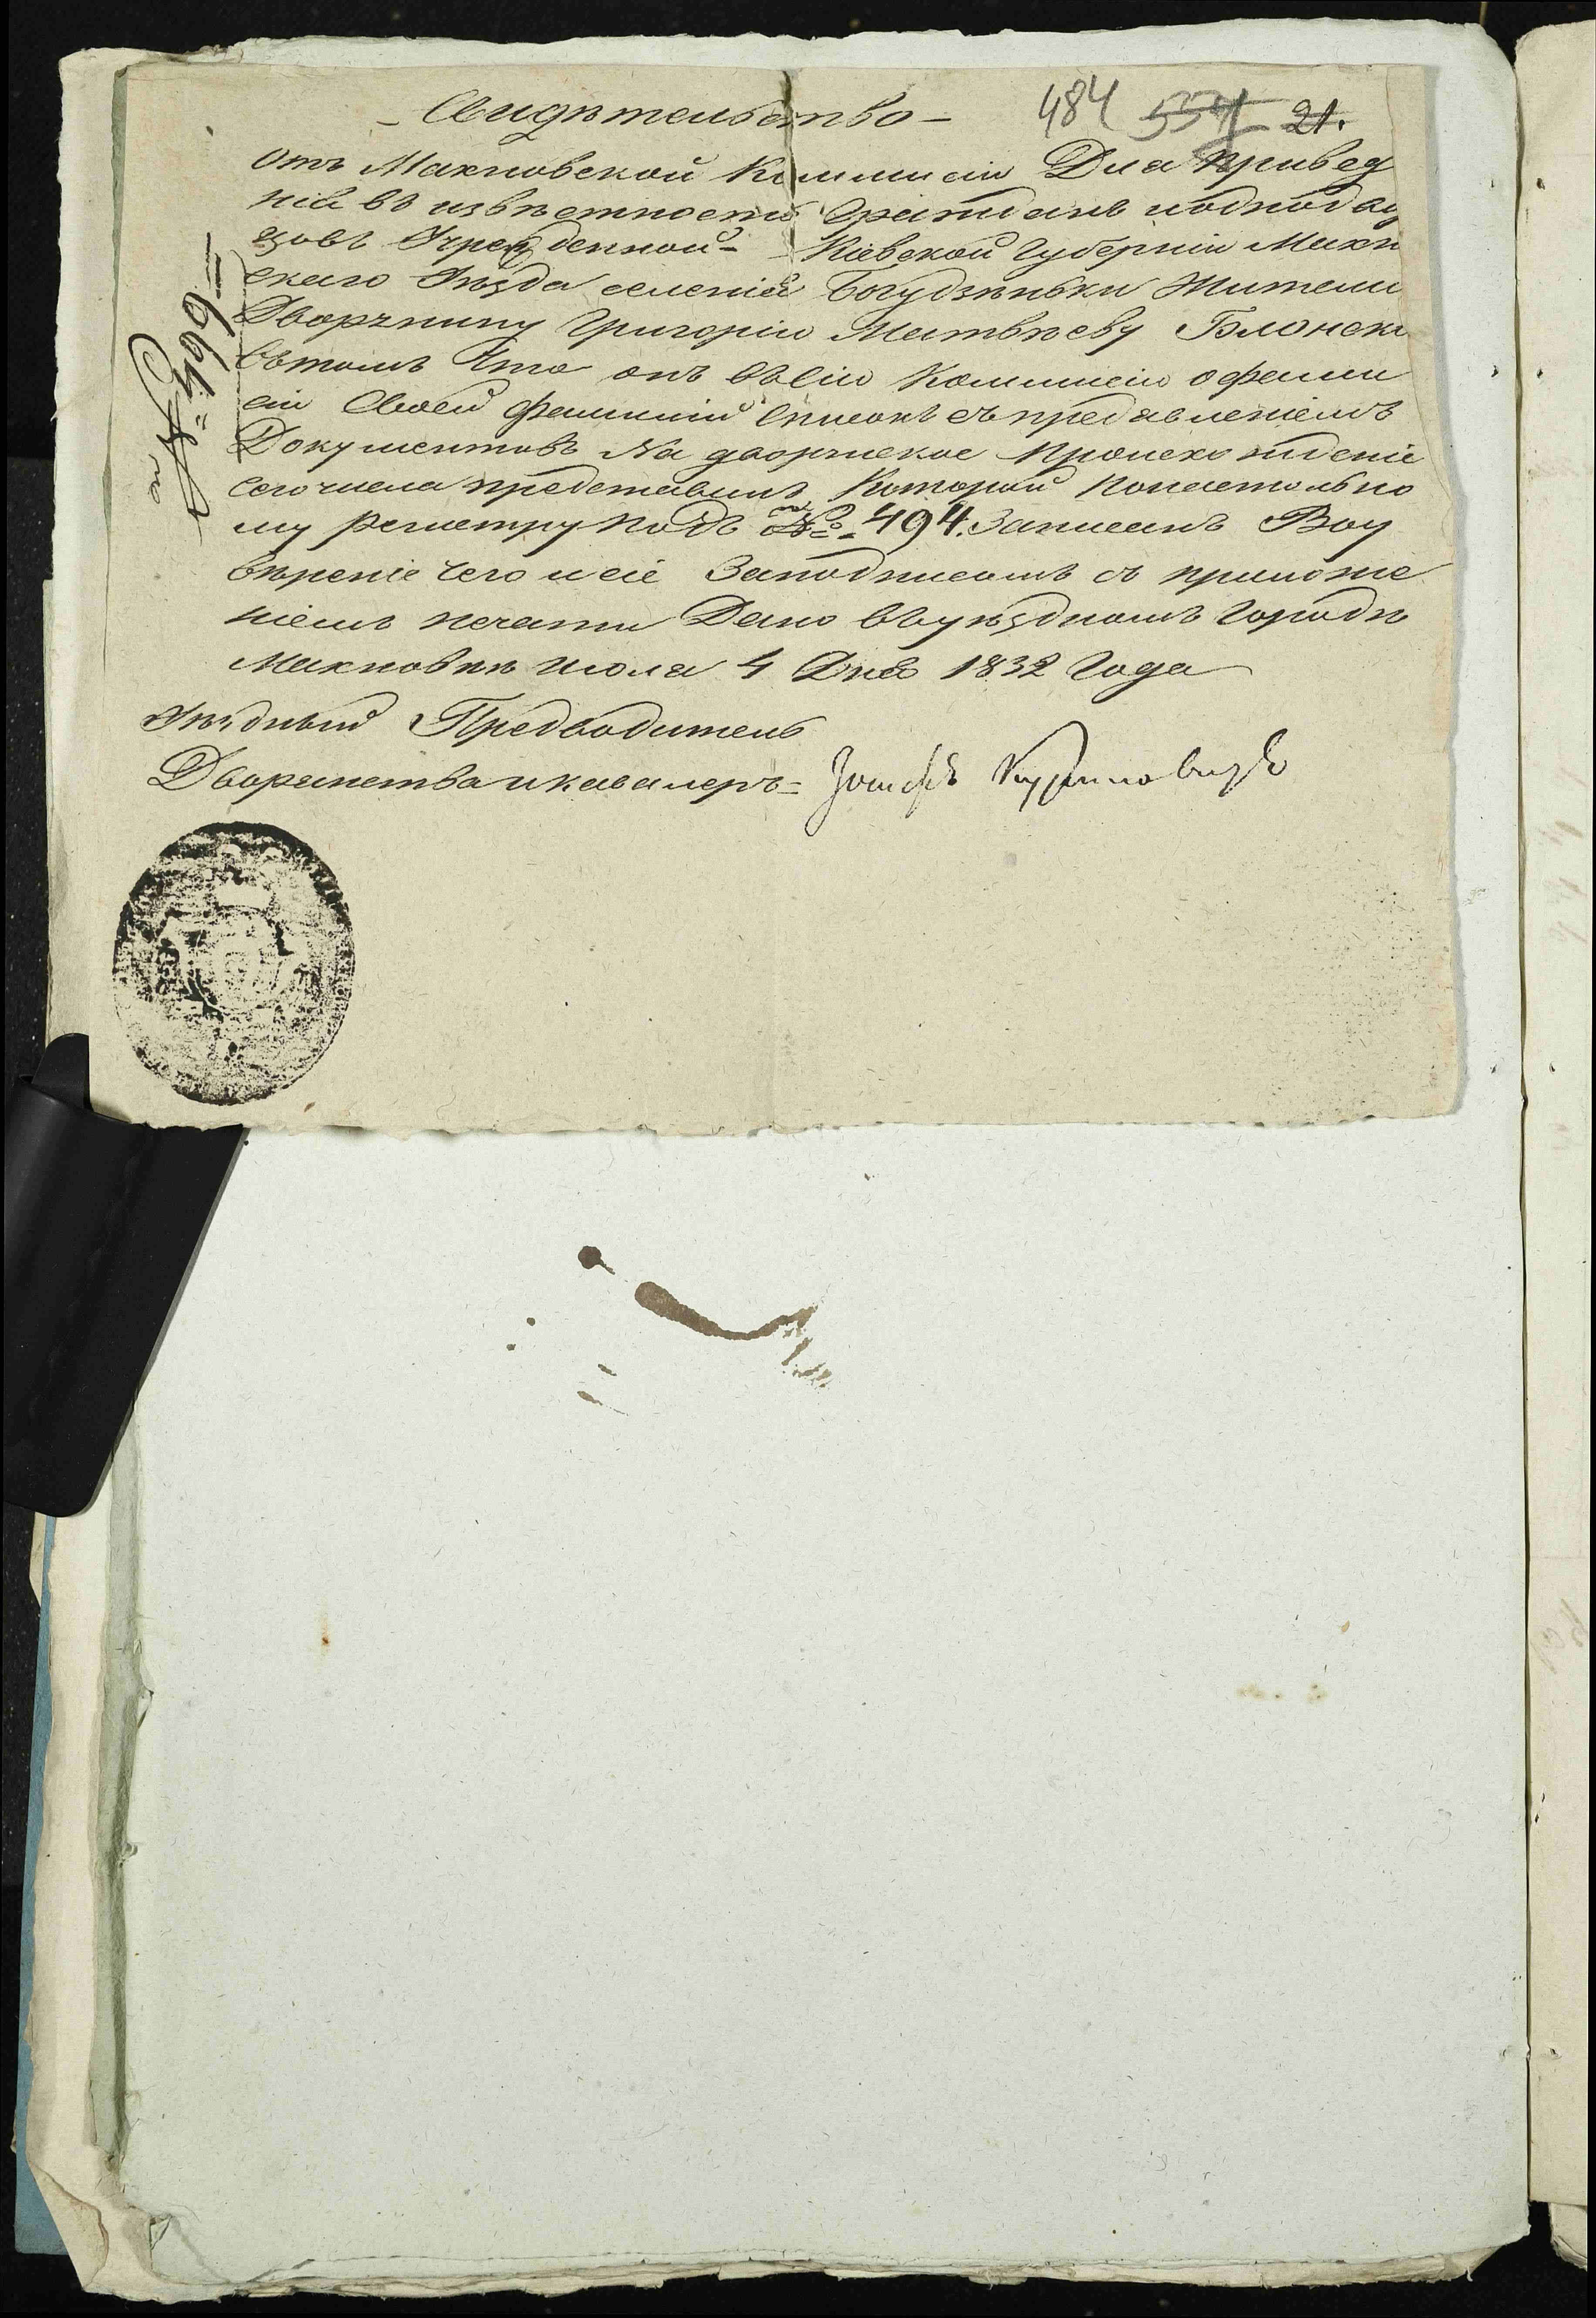 - Свидѣтельство -
484 557 21.
Отъ Махновской Коммисіи Для Привед
нія въ извѣстность Гражданъ и однодвор
цовъ Учрежденной - Кіевской Губерніи Махн
скаго Уѣзда селенія Богудзѣньки Жителю
Дворянину Григорію Матвѣеву Блонск
вътомъ Что онъ въСію Коммисію о фами
ліи Своей фамилній Списокъ съ представленіемъ
Документовъ На дворянское Происхожденіе
Сего числа представилъ Которой Понастольно
му реэстру Подъ № 494. Записанъ Воу
вѣреніе Чего и сіе Заподписомъ съ приложе
ніемъ печати Дано въуѣздномъ Городѣ
Махновкѣ Июля 4 Дня 1832 Года
Уѣздный Предводитель
Дворянства и кавалеръ =
№ 496